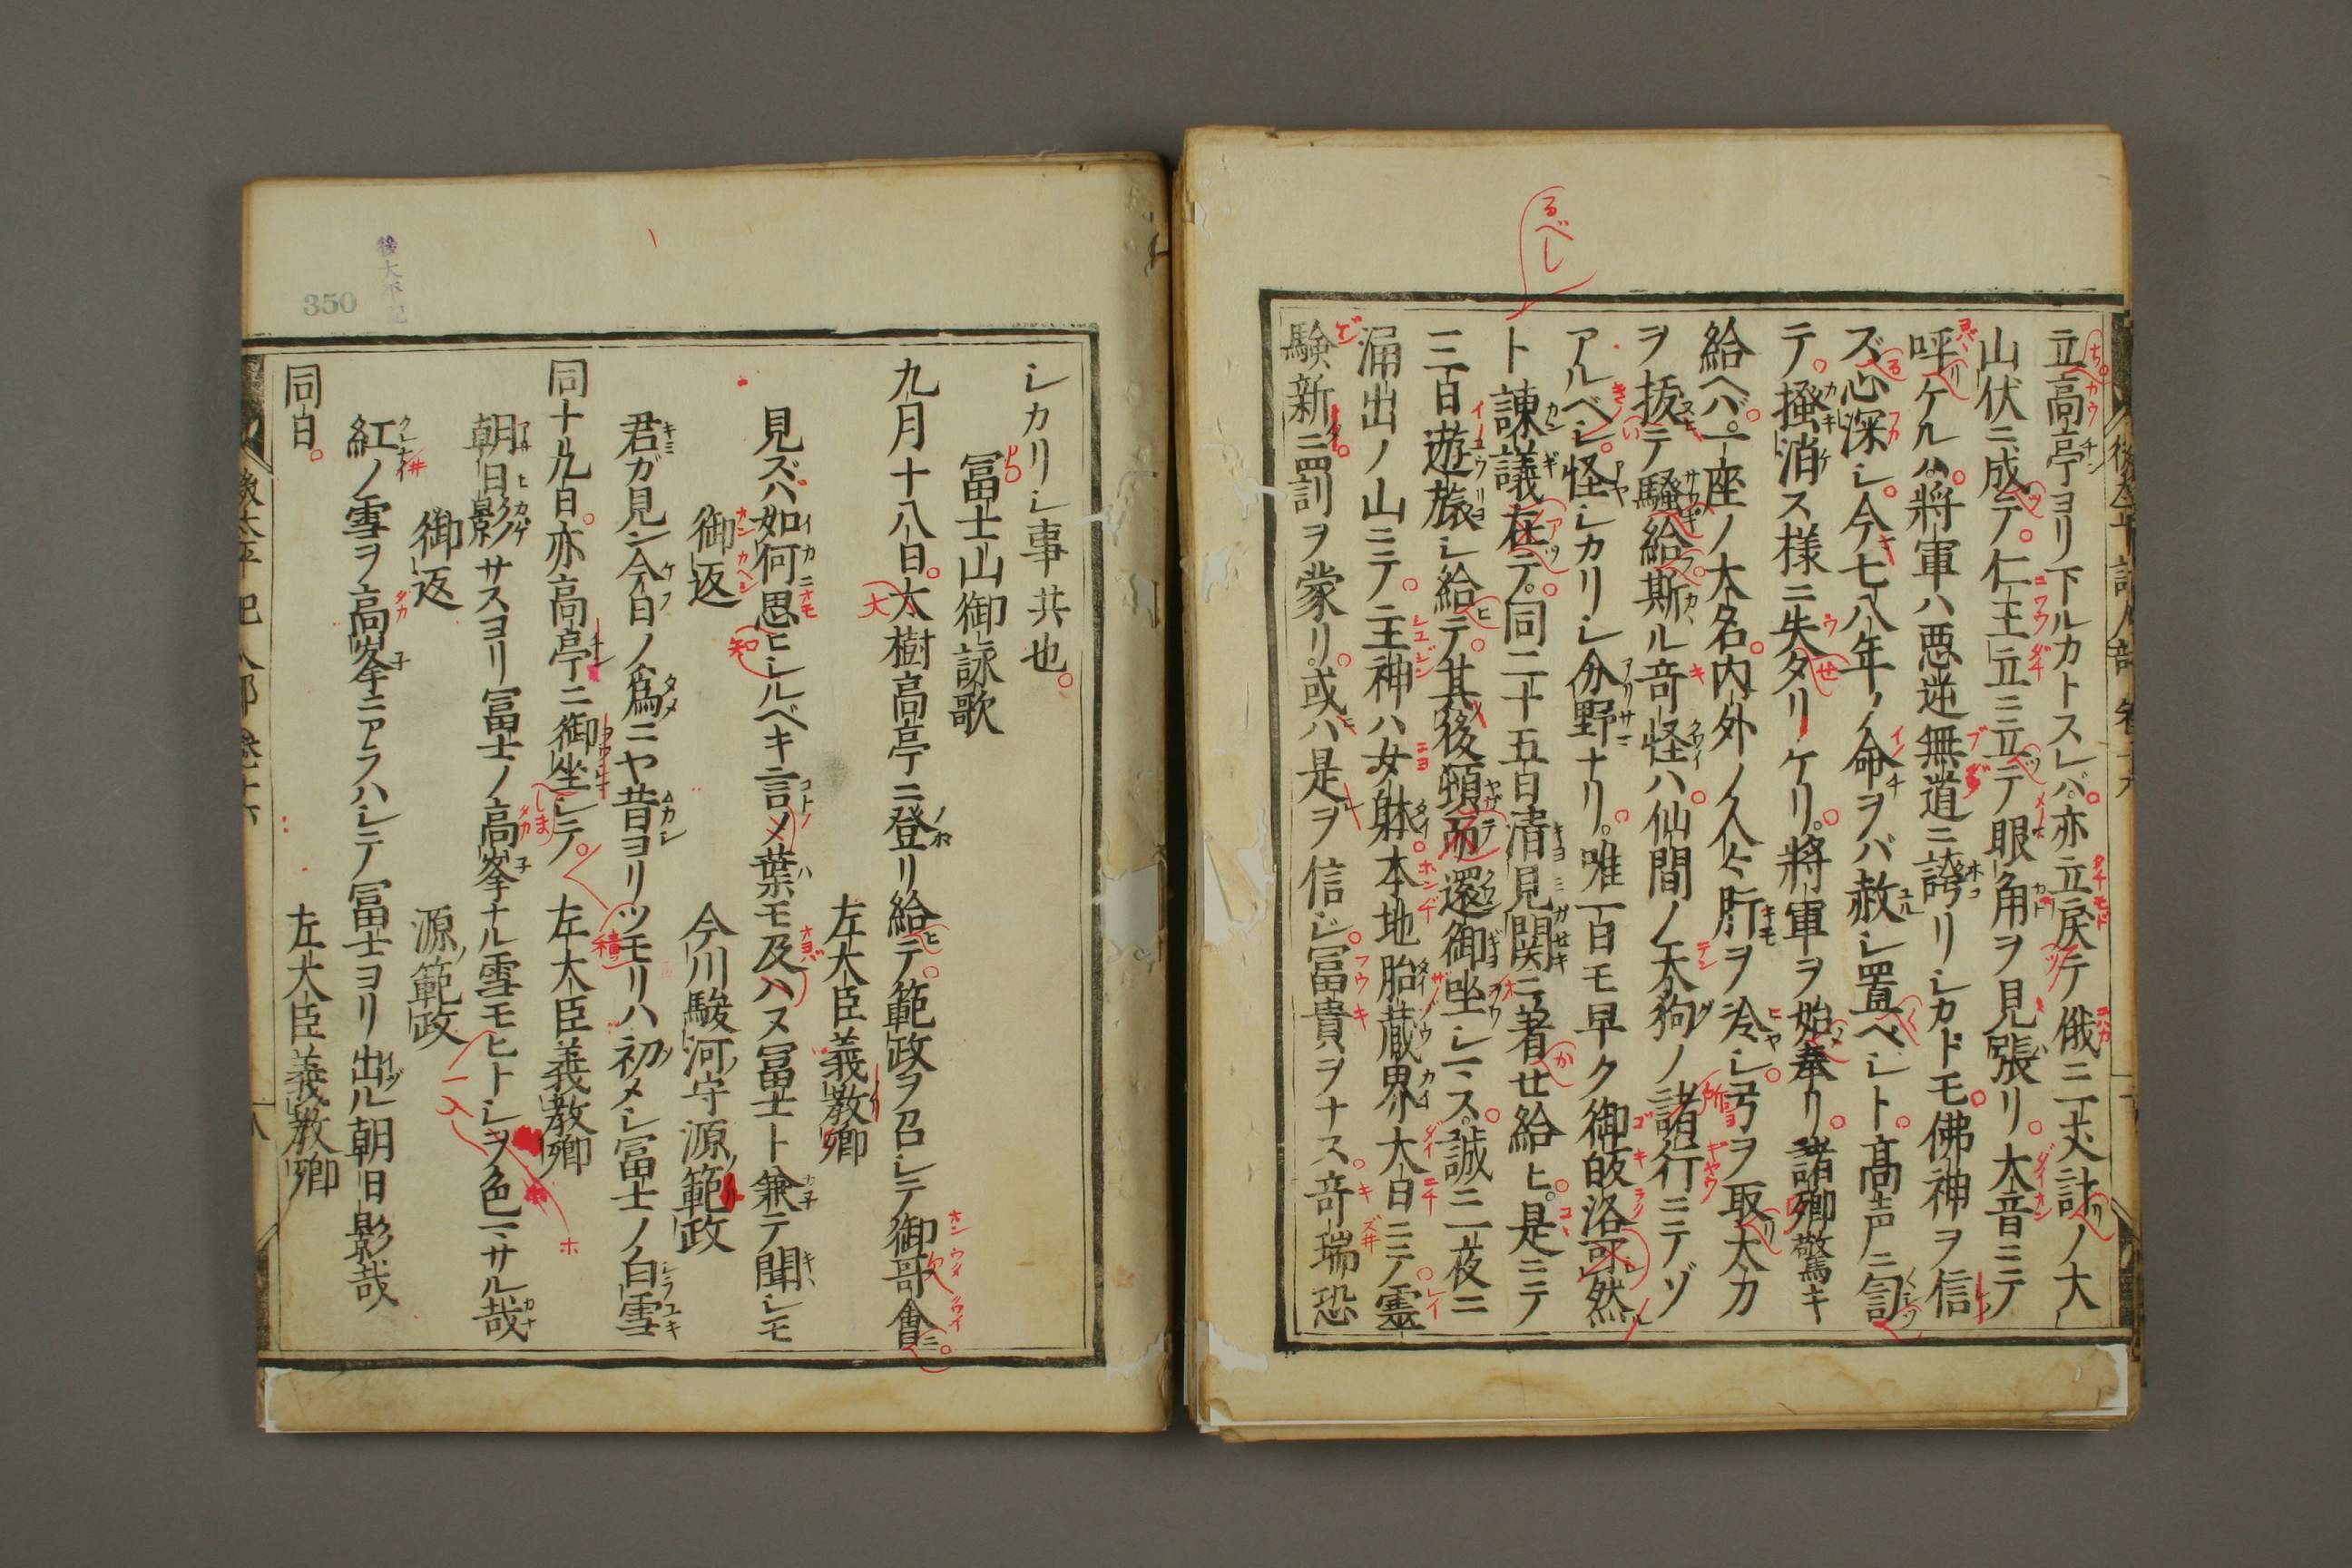 立高亭ヨリ下ルカトスレバ亦立戻テ俄ニ一丈計ノ大
山伏ニ成テ仁王立ニ立テ眼角ヲ見張リ大音ニテ
呼ケルハ將軍ハ悪逆無道ニ誇リシカドモ佛神ヲ信
ズ心深シ今七八年ノ命ヲバ赦シ置ベシト高声ニ訇
テ掻消ス様ニ失タリケリ將軍ヲ始奉リ諸卿驚キ
給ヘバ一座ノ大名内外ノ人々肝ヲ冷シ弓ヲ取太刀
ヲ抜テ騒給斯ル竒怪ハ仙間ノ天狗ノ諸行ニテゾ
アルベシ怪シカリシ分野ナリ唯一日モ早ク御皈洛可然
ト諌議在テ同二十五日清見関ニ著せ給ヒ是ニテ
三日遊旅シ給テ其後頓而還御坐シマス誠ニ一夜ニ
涌出ノ山ニテ主神ハ女躰本地胎蔵界大日ニテ霊
験新ニ罰ヲ蒙リ或ハ是ヲ信シ冨貴ヲナス竒瑞恐
るべし
シカリシ事共也
冨士山御詠歌
九月十八日大樹高亭ニ登リ給テ範政ヲ召シテ御哥會
左大臣義教卿
見ズバ如何思ヒシルベキ言ノ葉モ及ハヌ冨士ト兼テ聞シモ
御返
今川駿河守源範政
君ガ見ン今日ノ爲ニヤ昔ヨリツモリハ初メシ冨士ノ白雪
同十九日亦高亭ニ御坐シテ
左大臣義教卿
朝日影サスヨリ冨士ノ高峯ナル雪モヒトシヲ色マサル哉
御返
源範政
紅ノ雪ヲ高峯ニアラハシテ冨士ヨリ出ル朝日影哉
同日
左大臣義教卿
後太平記
350